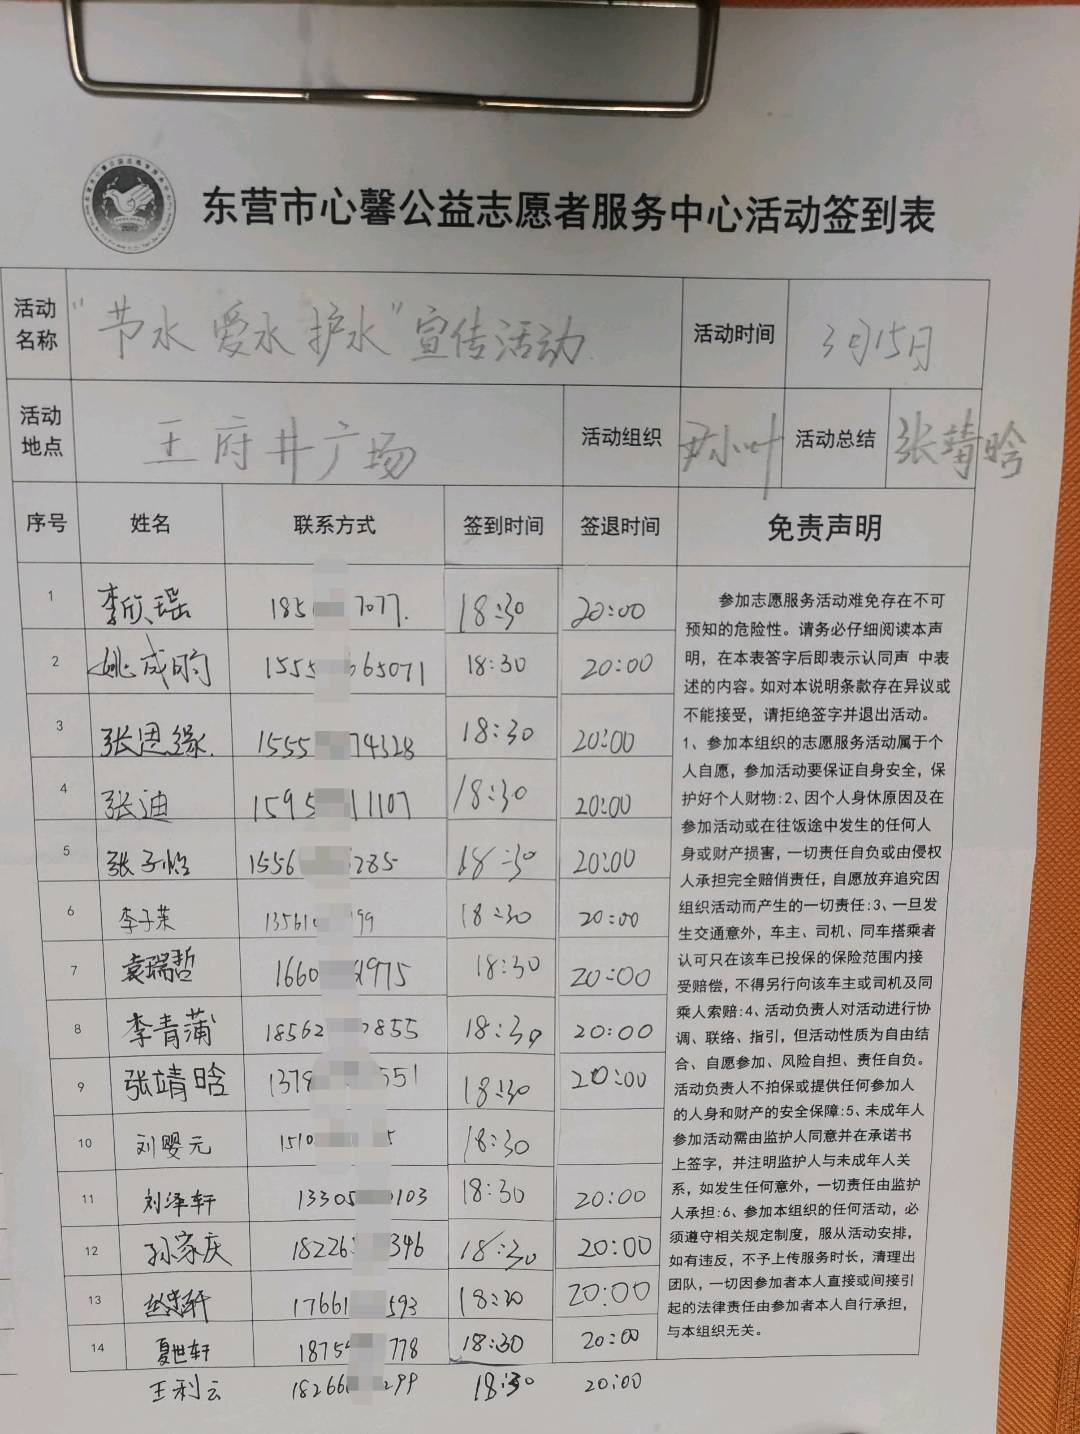 东营市心馨公益志愿者服务中心活动签到表
活动名称 "节水 爱水 护水"宣传活动 活动时间 3月15日
活动地点 王府井广场 活动组织 尹小叶 活动总结 张靖晗
序号 姓名 联系方式 签到时间 签退时间 免责声明
1 李欣瑶 185 7077. 18:30 20:00
2 姚成昀 1555 665071 18:30 20:00
3 张思缘. 1555 74328 18:30 20:00
4 张迪 1595 11107 18:30 20:00
5 张子怡 1556 285 18:30 20:00
6 李子茉 13561 99 18:30 20:00
7 袁瑞哲 1660 1975 18:30 20:00
8 李青蒲 18562 2855 18:30 20:00
9 张靖晗 1379 551 18:30 20:00
10 刘婴元 1510 5 18:30
11 刘泽轩 13305 0103 18:30 20:00
12 孙家庆 18226 346 18:30 20:00
13 轩 17661 593 18:30 20:00
14 夏世轩 1875 778 18:30 20:00
王利云 18266 299 18:30 20:00
参加志愿服务活动难免存在不可
预知的危险性。请务必仔细阅读本声
明，在本表签字后即表示认同声 中表
述的内容。如对本说明条款存在异议或
不能接受，请拒绝签字并退出活动。
1、参加本组织的志愿服务活动属于个
人自愿，参加活动要保证自身安全，保
护好个人财物:2、因个人身休原因及在
参加活动或在往饭途中发生的任何人
身或财产损害，一切责任自负或由侵权
人承担完全赔俏责任，自愿放弃追究因
组织活动而产生的一切责任:3、一旦发
生交通意外，车主、司机、同车搭乘者
认可只在该车已投保的保险范围内接
受赔偿，不得另行向该车主或司机及同
乘人索赔:4、活动负责人对活动进行协
调、联络、指引，但活动性质为自由结
合、自愿参加、风险自担、责任自负。
活动负责人不拍保或提供任何参加人
的人身和财产的安全保障:5、未成年人
参加活动需由监护人同意并在承诺书
上签字，并注明监护人与未成年人关
系，如发生任何意外，一切责任由监护
人承担:6、参加本组织的任何活动，必
须遵守相关规定制度，服从活动安排，
如有违反，不予上传服务时长，清理出
团队，一切因参加者本人直接或间接引
起的法律责任由参加者本人自行承担，
与本组织无关。